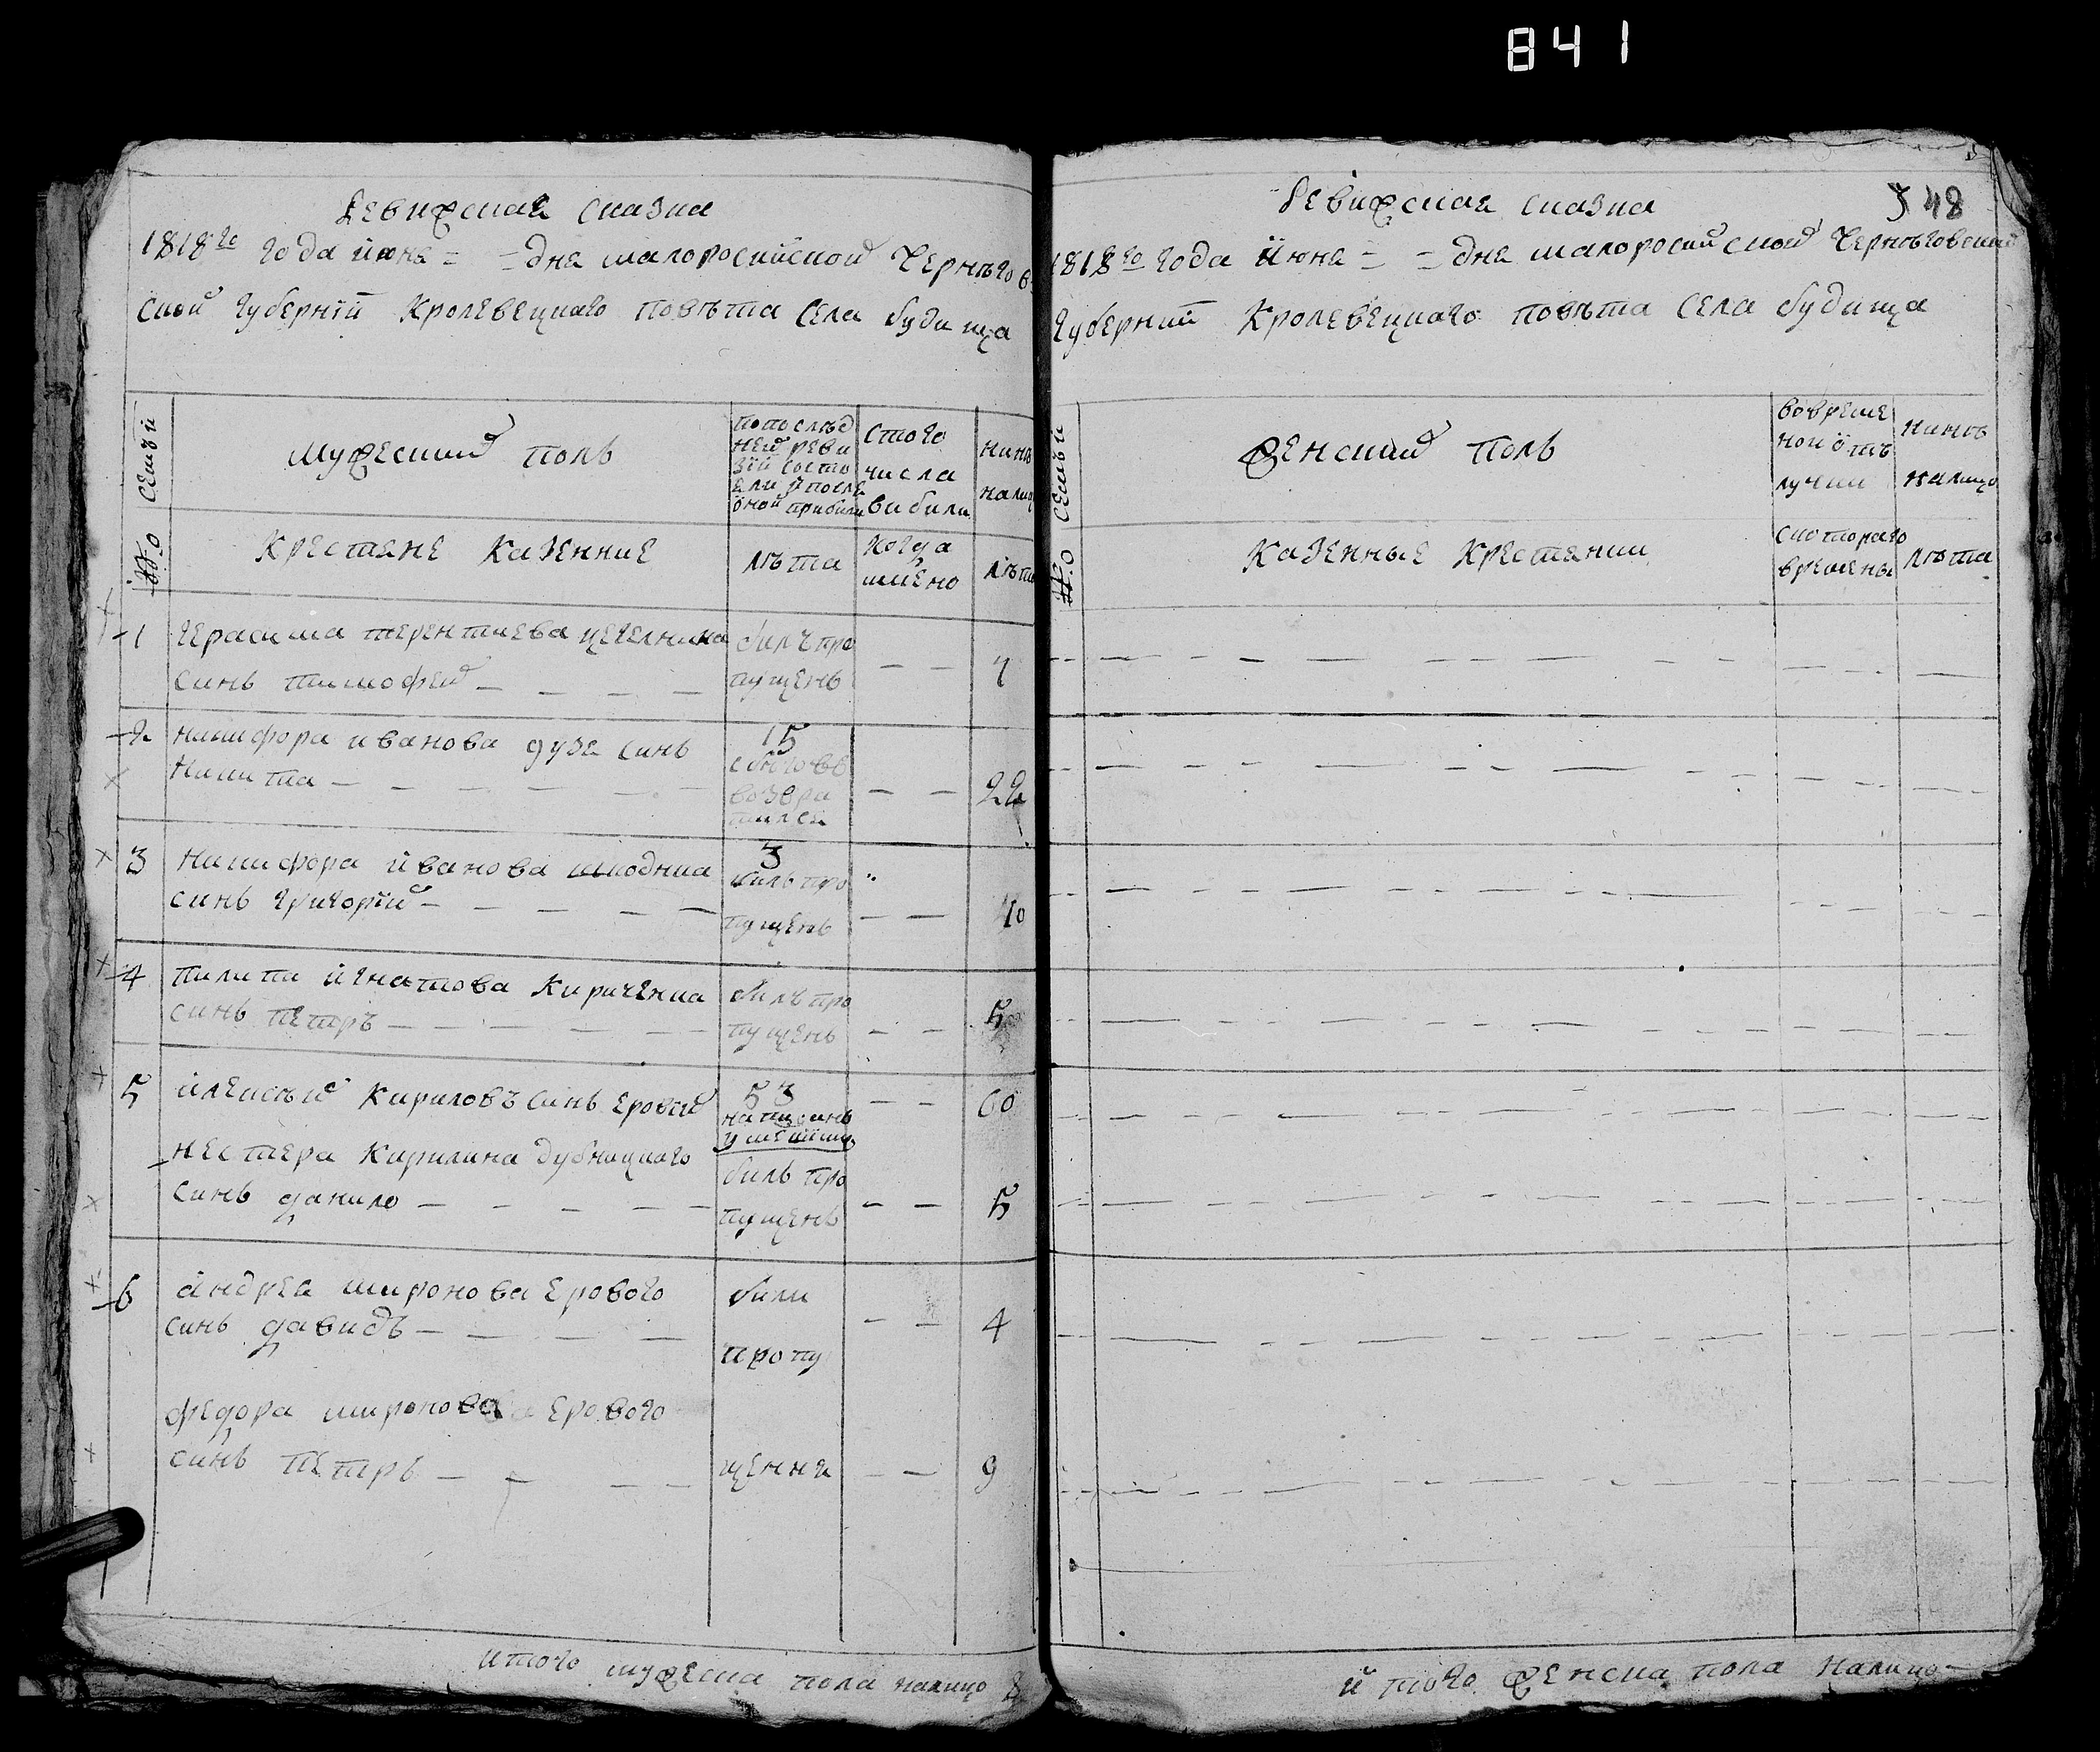 841
Ревижская сказка
1818го года июня = = дня малоросийской Чернъгов
ской губернїй Кролевецкаго повъта Села будища
№о семъй
мужеский полъ
попослъд
ней реви
зїй состо
яли и после
оной прибили
стого
числа
вибили
нинъ
налиц
Крестяне Казенние
лъта
когда
имено
лъта
1 Герасима терентиева цегелника
синъ тимофей
билъ про
пущенъ
7
2 никифора иванова дузя синъ
Никита
15
возвра
тилси
22
3 никифора иванова шкодника
синъ григорїй
3
билъ про
пущенъ
10
4 пилипа игнатова Кириченка
синъ петръ
билъ про
пущенъ
5
5 илексъй Кириловъ синъ еровий
53
60
нестера Кирилина дубницкаго
синъ данило
билъ про
пущенъ
5
6 андрея миронова ерового
синъ давидъ
били
пропу
4
федора миронова ерового
синъ петръ
щенни
9
итого мужеска пола налицо 8
48
Ревижская сказка
1818го года июня = = дня малоросийской Чернъговской
губернии Кролевецкаго повъта Села будища
№о семъй
женский полъ
вовреме
ной отъ
лучки
нинъ
налицо
Казенные Крестянки
скотораго
времены
лъта
итого женска пола налицо —